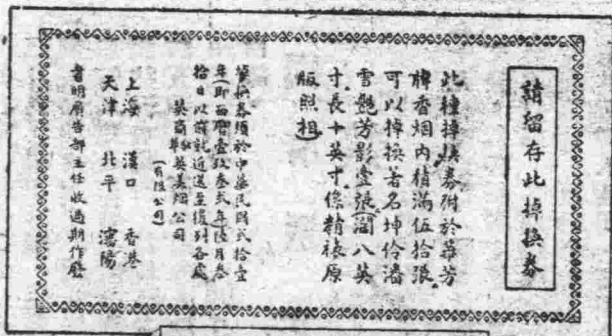 請留存此掉換券
此種掉換券附於華芳
牌香烟内積滿伍拾張
可以掉換著名坤伶潘
雪艷芳影壹張(闊八英
寸長十英寸)係精裱原
版照相
掉換券須於中華民國貳拾壹
年(即西曆壹玖叁貳年)陸月叁
拾日以前就近送至後列各處
英商駐華英美烟公司
(有限公司)
上海 漢口 香港
天津 北平 瀋陽
書明廣告部主任收過期作廢